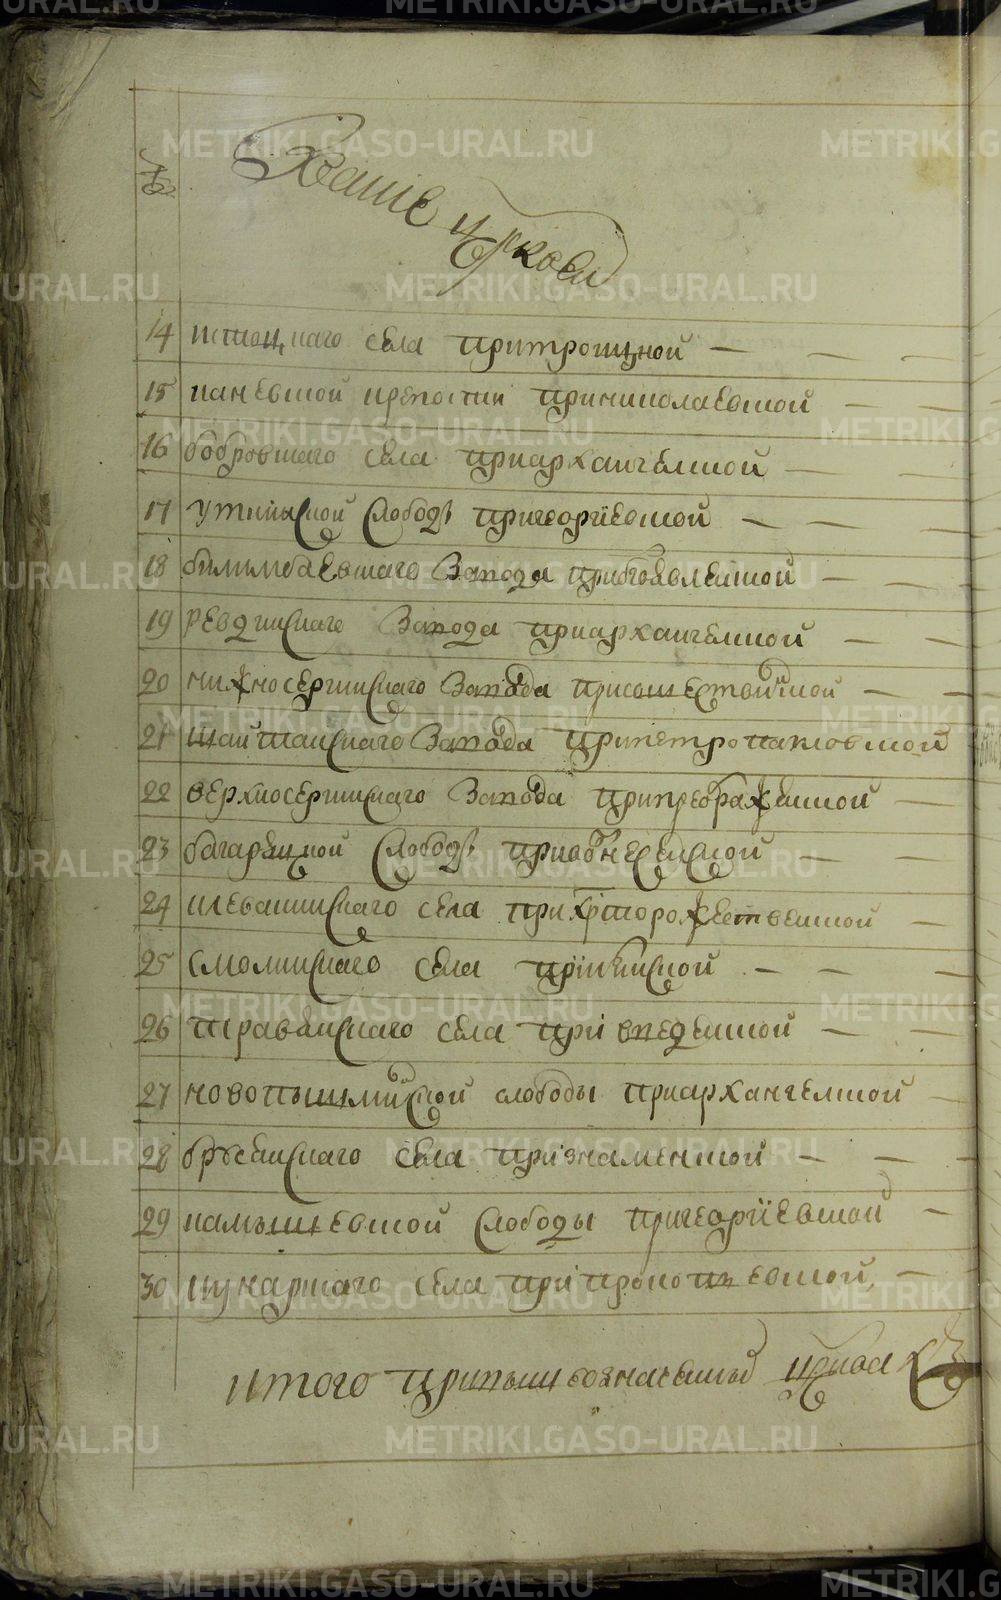 METRIKI.GASO-URAL.RU
№
Звание церкви
14 истоцкаго села притроицкой
15 каневской крепости приниколаевской
16 бобровскаго села приархангелской
17 уткинской слободѣ пригеоргiевской
18 билимбаевскаго завода прибгоявленской
19 ревдинскаго завода приархангелской
20 нижносергинскаго завода присошественской
21 шайтанскаго завода припетропавловской
22 верхносергинскаго завода припреображенской
23 багаряцкой слободѣ привознесенской
24 клевакинскаго села прихрсторожественской
25 смолинскаго села
26 травянскаго села прi введенской
27 новопышминской слободы приархангелской
28 села прiзнаменской
29 камышевской слободы пригеоргiевской
30 кунарскаго села прiпрокопьевской
итого привышеозначенных